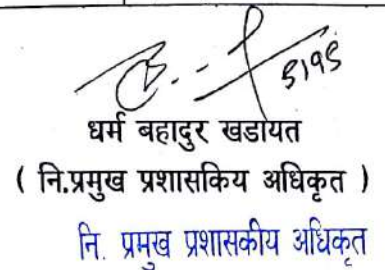 धर्म बहादुर खडायत
( नि.प्रमुख प्रशासकिय अधिकृत )
नि. प्रमुख प्रशासकीय अधिकृत